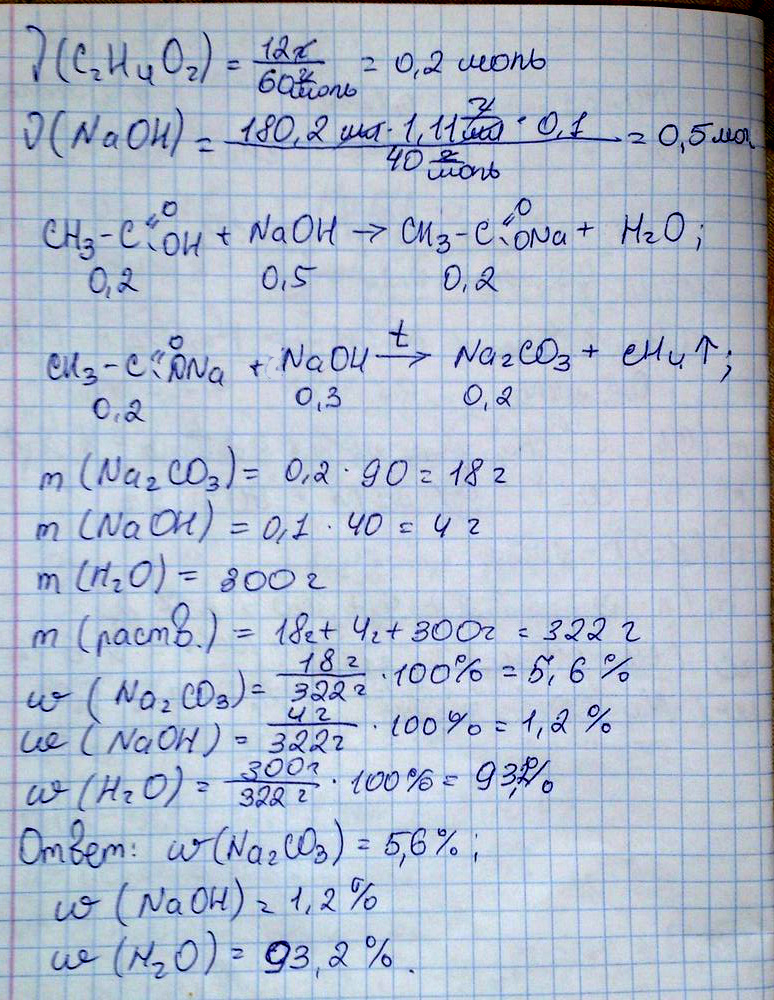 ν(C₂H₄O₂) = 12г / 60 г/моль = 0,2 моль
ν(NaOH) = 180,2 мл · 1,11 г/мл · 0,1 / 40 г/моль = 0,5 мол
CH₃-C(=O)OH + NaOH → CH₃-C(=O)ONa + H₂O;
0,2 0,5 0,2
CH₃-C(=O)ONa + NaOH –t→ Na₂CO₃ + CH₄↑;
0,2 0,3 0,2
m (Na₂CO₃) = 0,2 · 90 = 18 г
m (NaOH) = 0,1 · 40 = 4 г
m (H₂O) = 300 г
m (раств.) = 18г + 4г + 300г = 322 г
w (Na₂CO₃) = 18 г / 322 г · 100% = 5,6 %
w (NaOH) = 4 г / 322 г · 100% = 1,2 %
w (H₂O) = 300г / 322 г · 100% = 93,2%
Ответ: w (Na₂CO₃) = 5,6 %;
w (NaOH) = 1,2 %
w (H₂O) = 93,2 %.